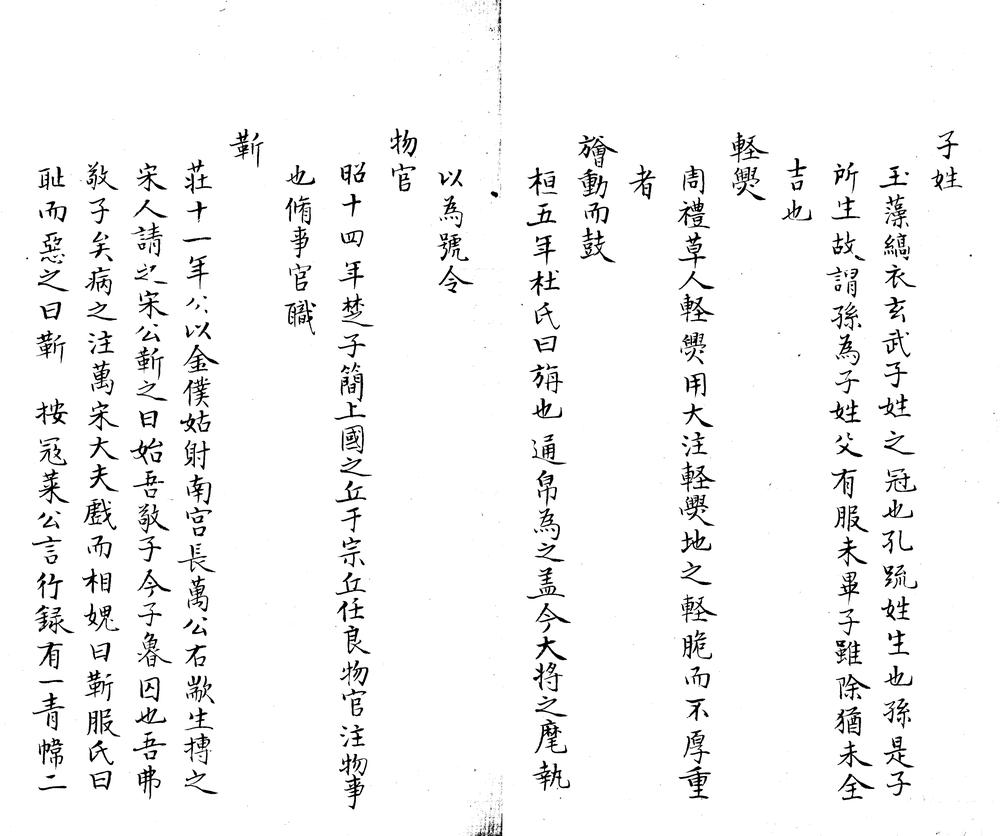 子姓
玉藻縞衣玄武子姓之冠也孔疏姓生也孫是子
所生故謂孫為子姓父有服未畢子雖除猶未全
吉也
軽㷟
周禮草人軽㷟用犬注軽㷟地之軽脆而不厚重
者
旝動而鼓
桓五年杜氏曰旃也通帛為之盖今大将之麾執
以為號令
物官
昭十四年楚子簡上國之丘于宗丘任良物官注物事
也脩事官職
靳
荘十一年公以金僕姑射南宫長萬公右歂生摶之
宋人請之宋公靳之曰始吾敬子今子魯囚也吾弗
敬子矣病之注萬宋大夫戲而相媿曰靳服氏曰
耻而惡之曰靳　桉冦萊公言行録有一青幃二